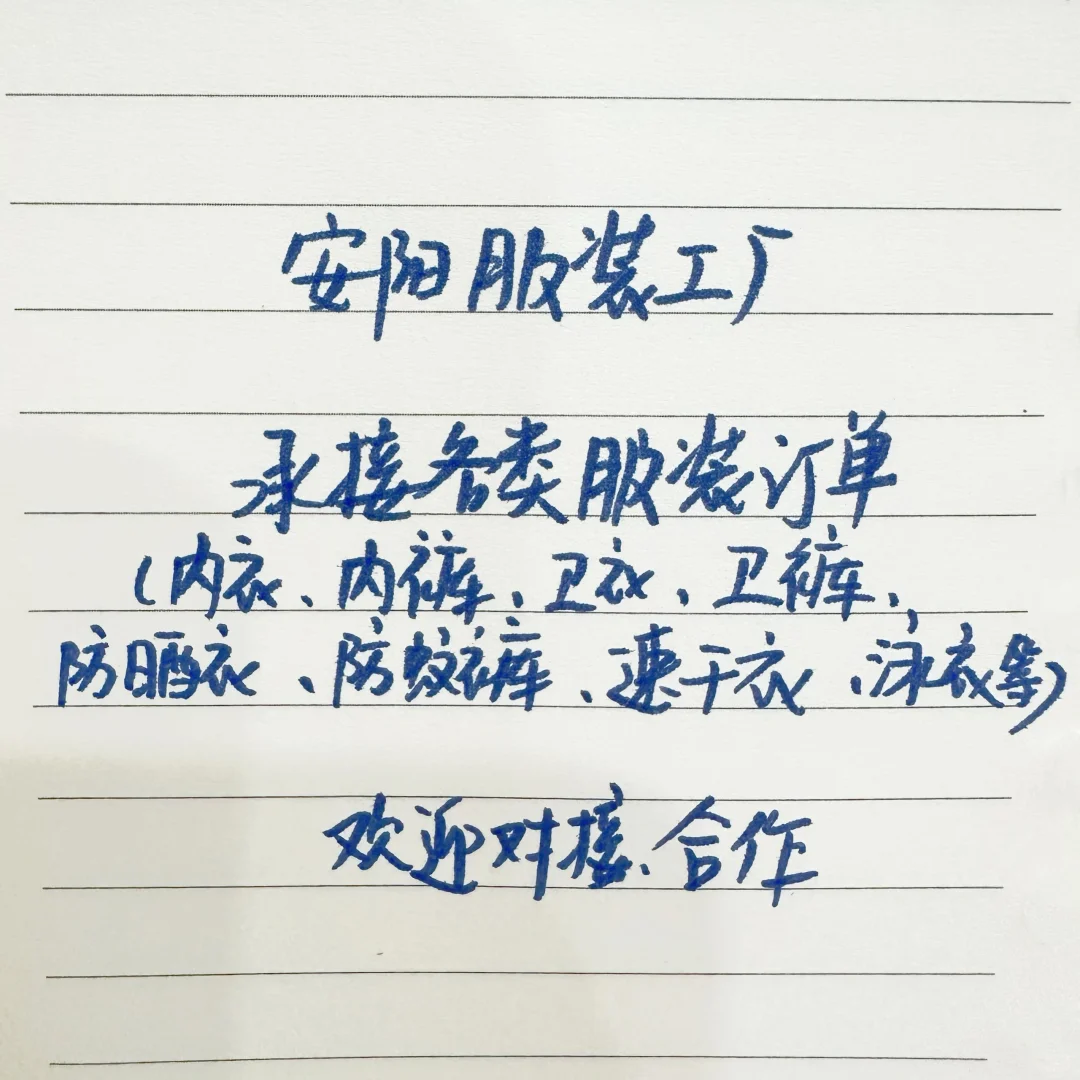 安阳服装工厂
承接各类服装订单
(内衣、内裤、卫衣、卫裤、
防晒衣、防蚊裤、速干衣、泳衣等)
欢迎对接、合作